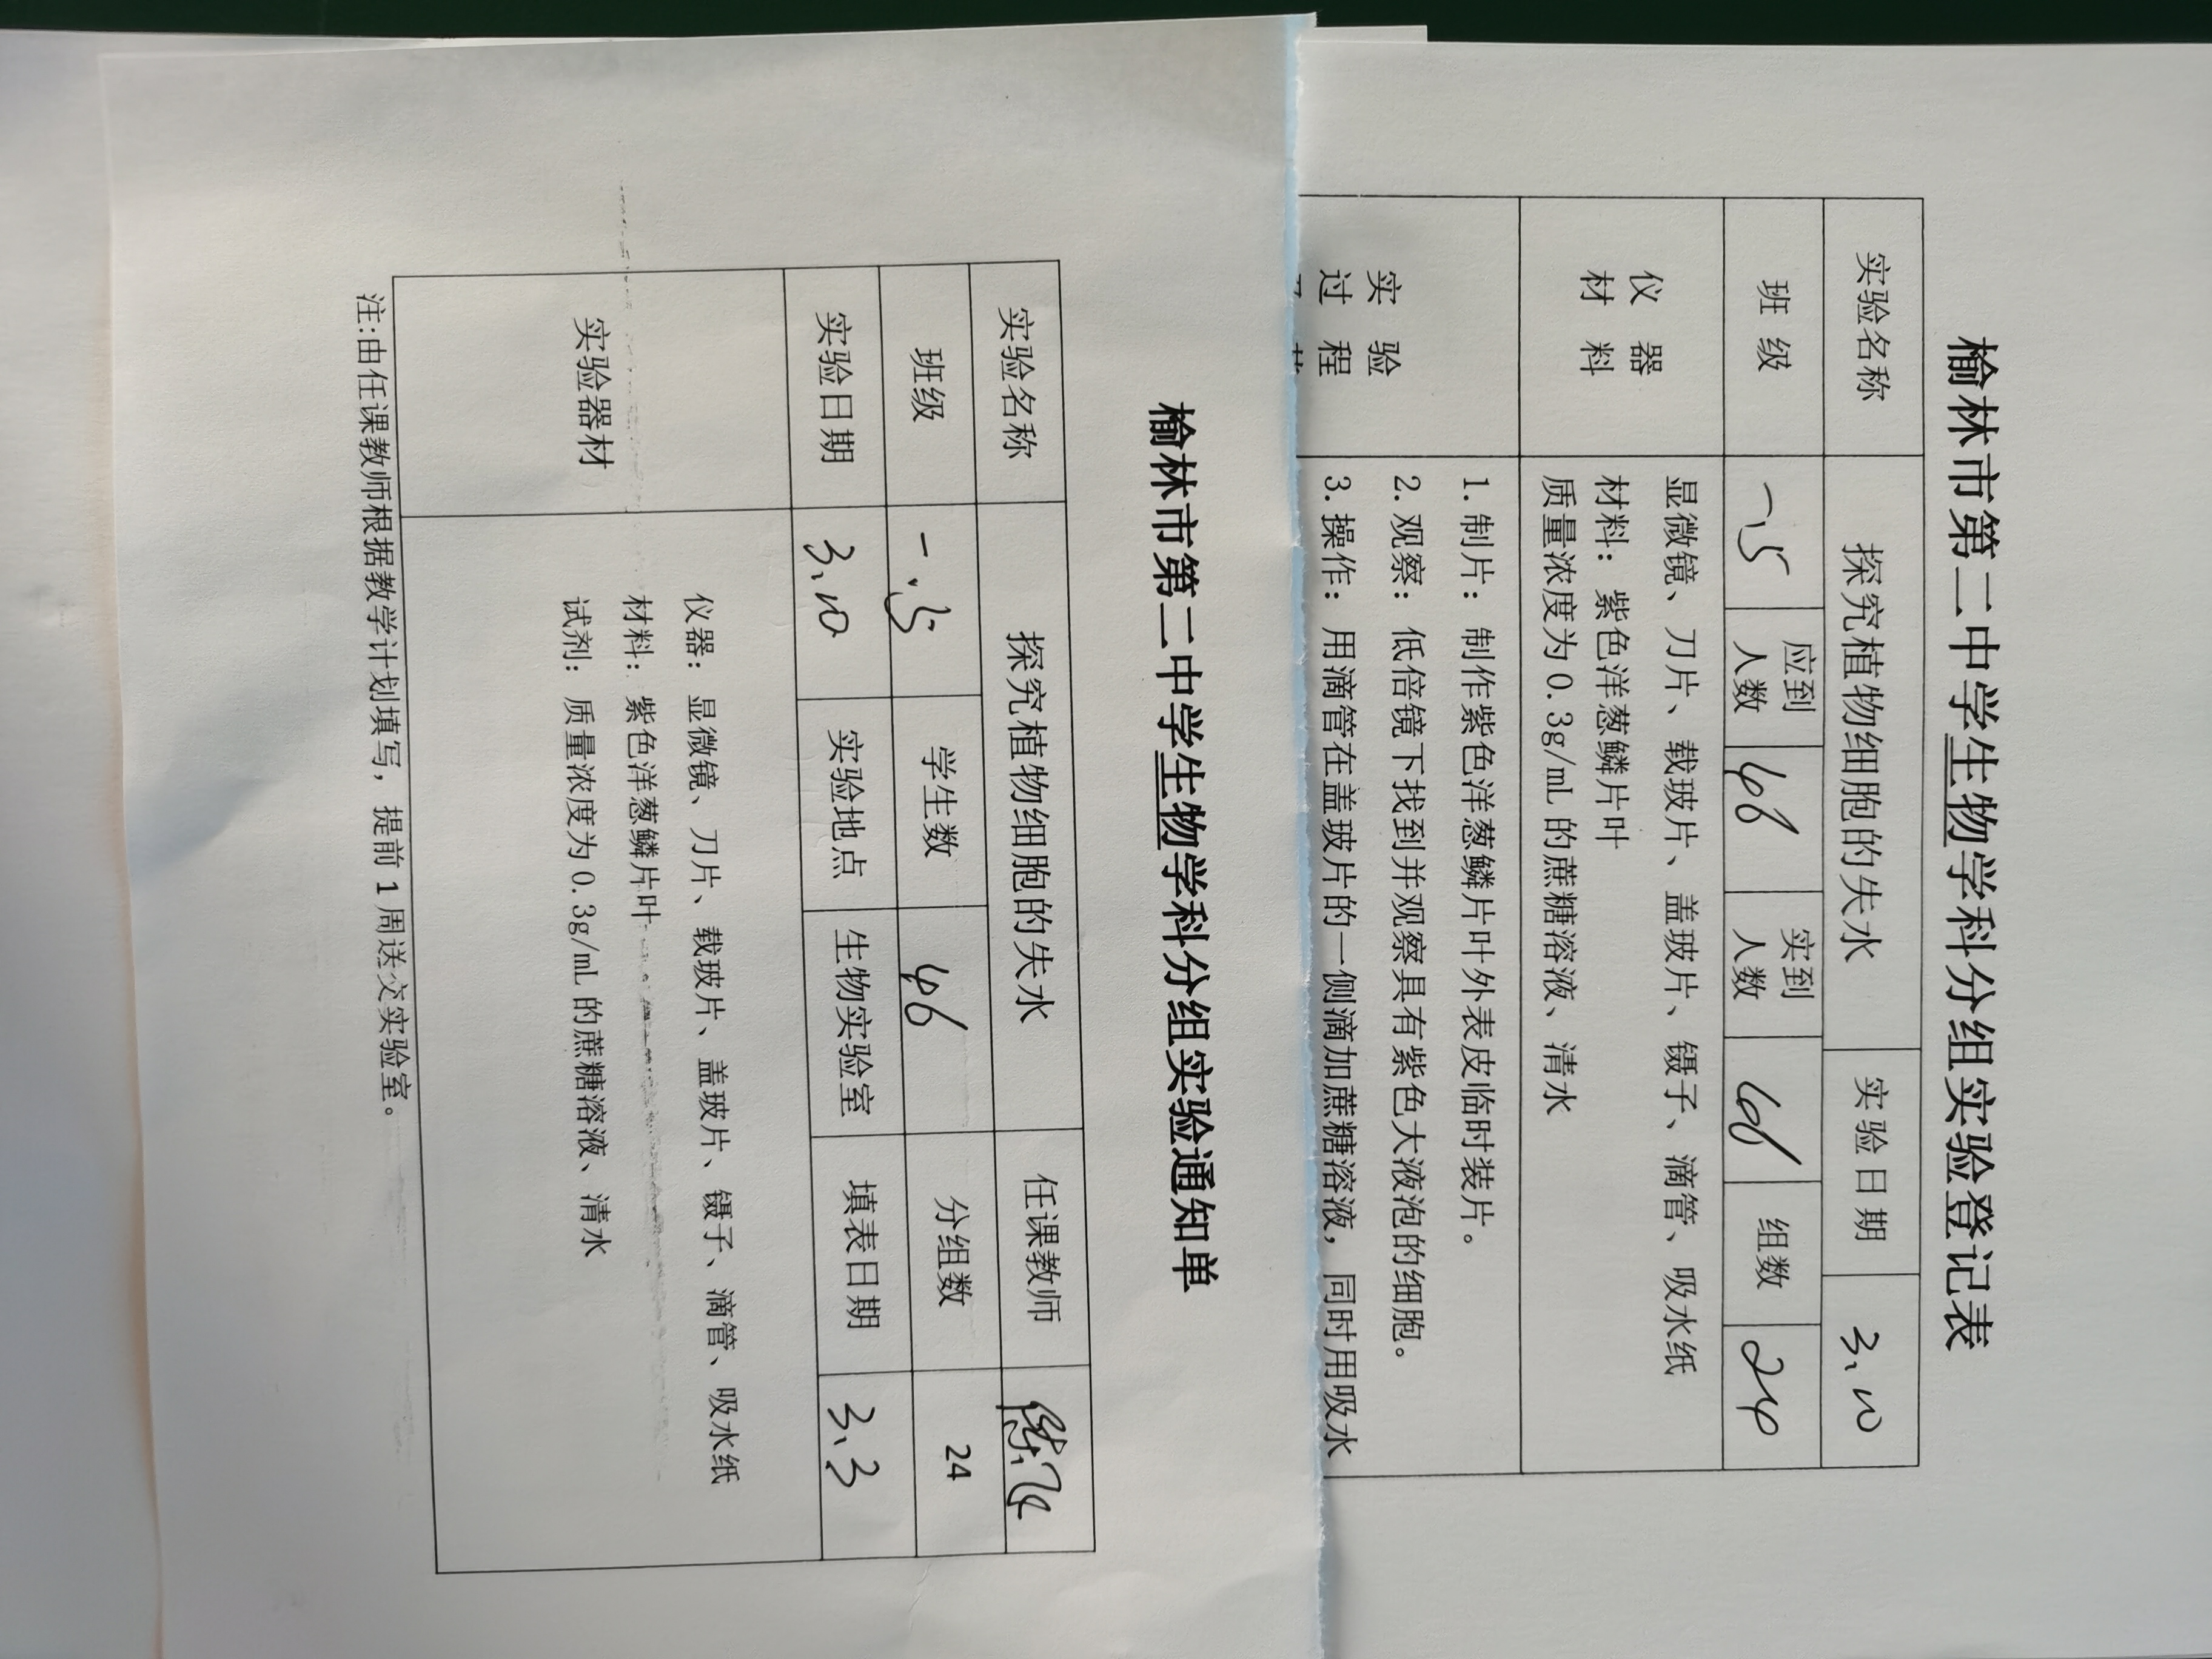 榆林市第二中学生物学科分组实验登记表
实验名称 探究植物细胞的失水 实验日期 3.10
班级 一.5 应到人数 46 实到人数 46 组数 24
仪器材料
显微镜、刀片、载玻片、盖玻片、镊子、滴管、吸水纸
材料：紫色洋葱鳞片叶
质量浓度为0.3g/mL 的蔗糖溶液、清水
实验过程
1.制片：制作紫色洋葱鳞片叶外表皮临时装片。
2.观察：低倍镜下找到并观察具有紫色大液泡的细胞。
3.操作：用滴管在盖玻片的一侧滴加蔗糖溶液，同时用吸水
榆林市第二中学生物学科分组实验通知单
实验名称 探究植物细胞的失水 任课教师
班级 一.5 学生数 46 分组数 24
实验日期 3.10 实验地点 生物实验室 填表日期 3.3
实验器材
仪器：显微镜、刀片、载玻片、盖玻片、镊子、滴管、吸水纸
材料：紫色洋葱鳞片叶
试剂：质量浓度为0.3g/mL 的蔗糖溶液、清水
注:由任课教师根据教学计划填写，提前1周送交实验室。